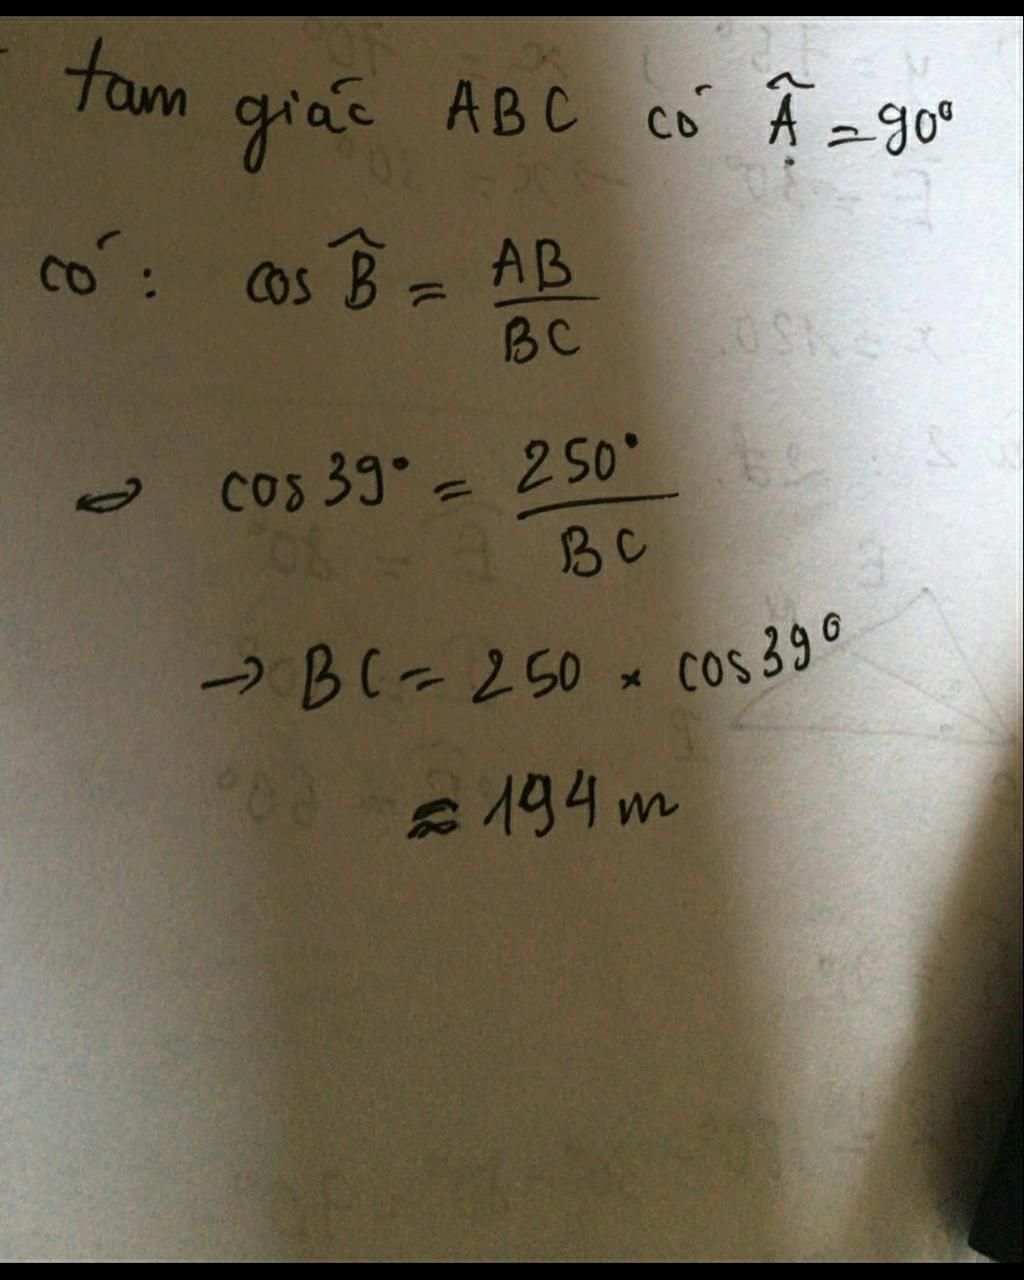 tam giác ABC có Â = 90°
có: cos B̂ = AB/BC
=> cos 39° = 250°/BC
→ BC = 250 × cos 39°
≈ 194 m